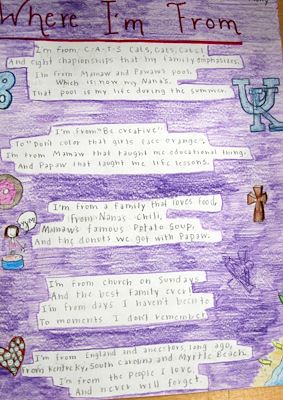 Where I'm From
I'm from C-A-T-S cats, cats, cats!
And eight chapionships that my family emphasizes.
I'm from Mamaw and Papaw's pool,
Which is now my Nana's.
That pool is my life during the summer.
I'm from "Be creative"
To "Don't color that girls face orange".
I'm from Mamaw that taught me educational thing.
And Papaw that taught me life lessons.
I'm from a family that loves food,
From Nana's chili,
Mamaw's famous Potato Soup,
And the donuts we got with Papaw.
I'm from church on Sundays
And the best family ever!
I'm from days I haven't been to
To moments I don't remember
I'm from England and ancestors long ago,
From Kentucky, South Carolina and Myrtle Beach.
I'm from the people I love,
And never will forget.
UK